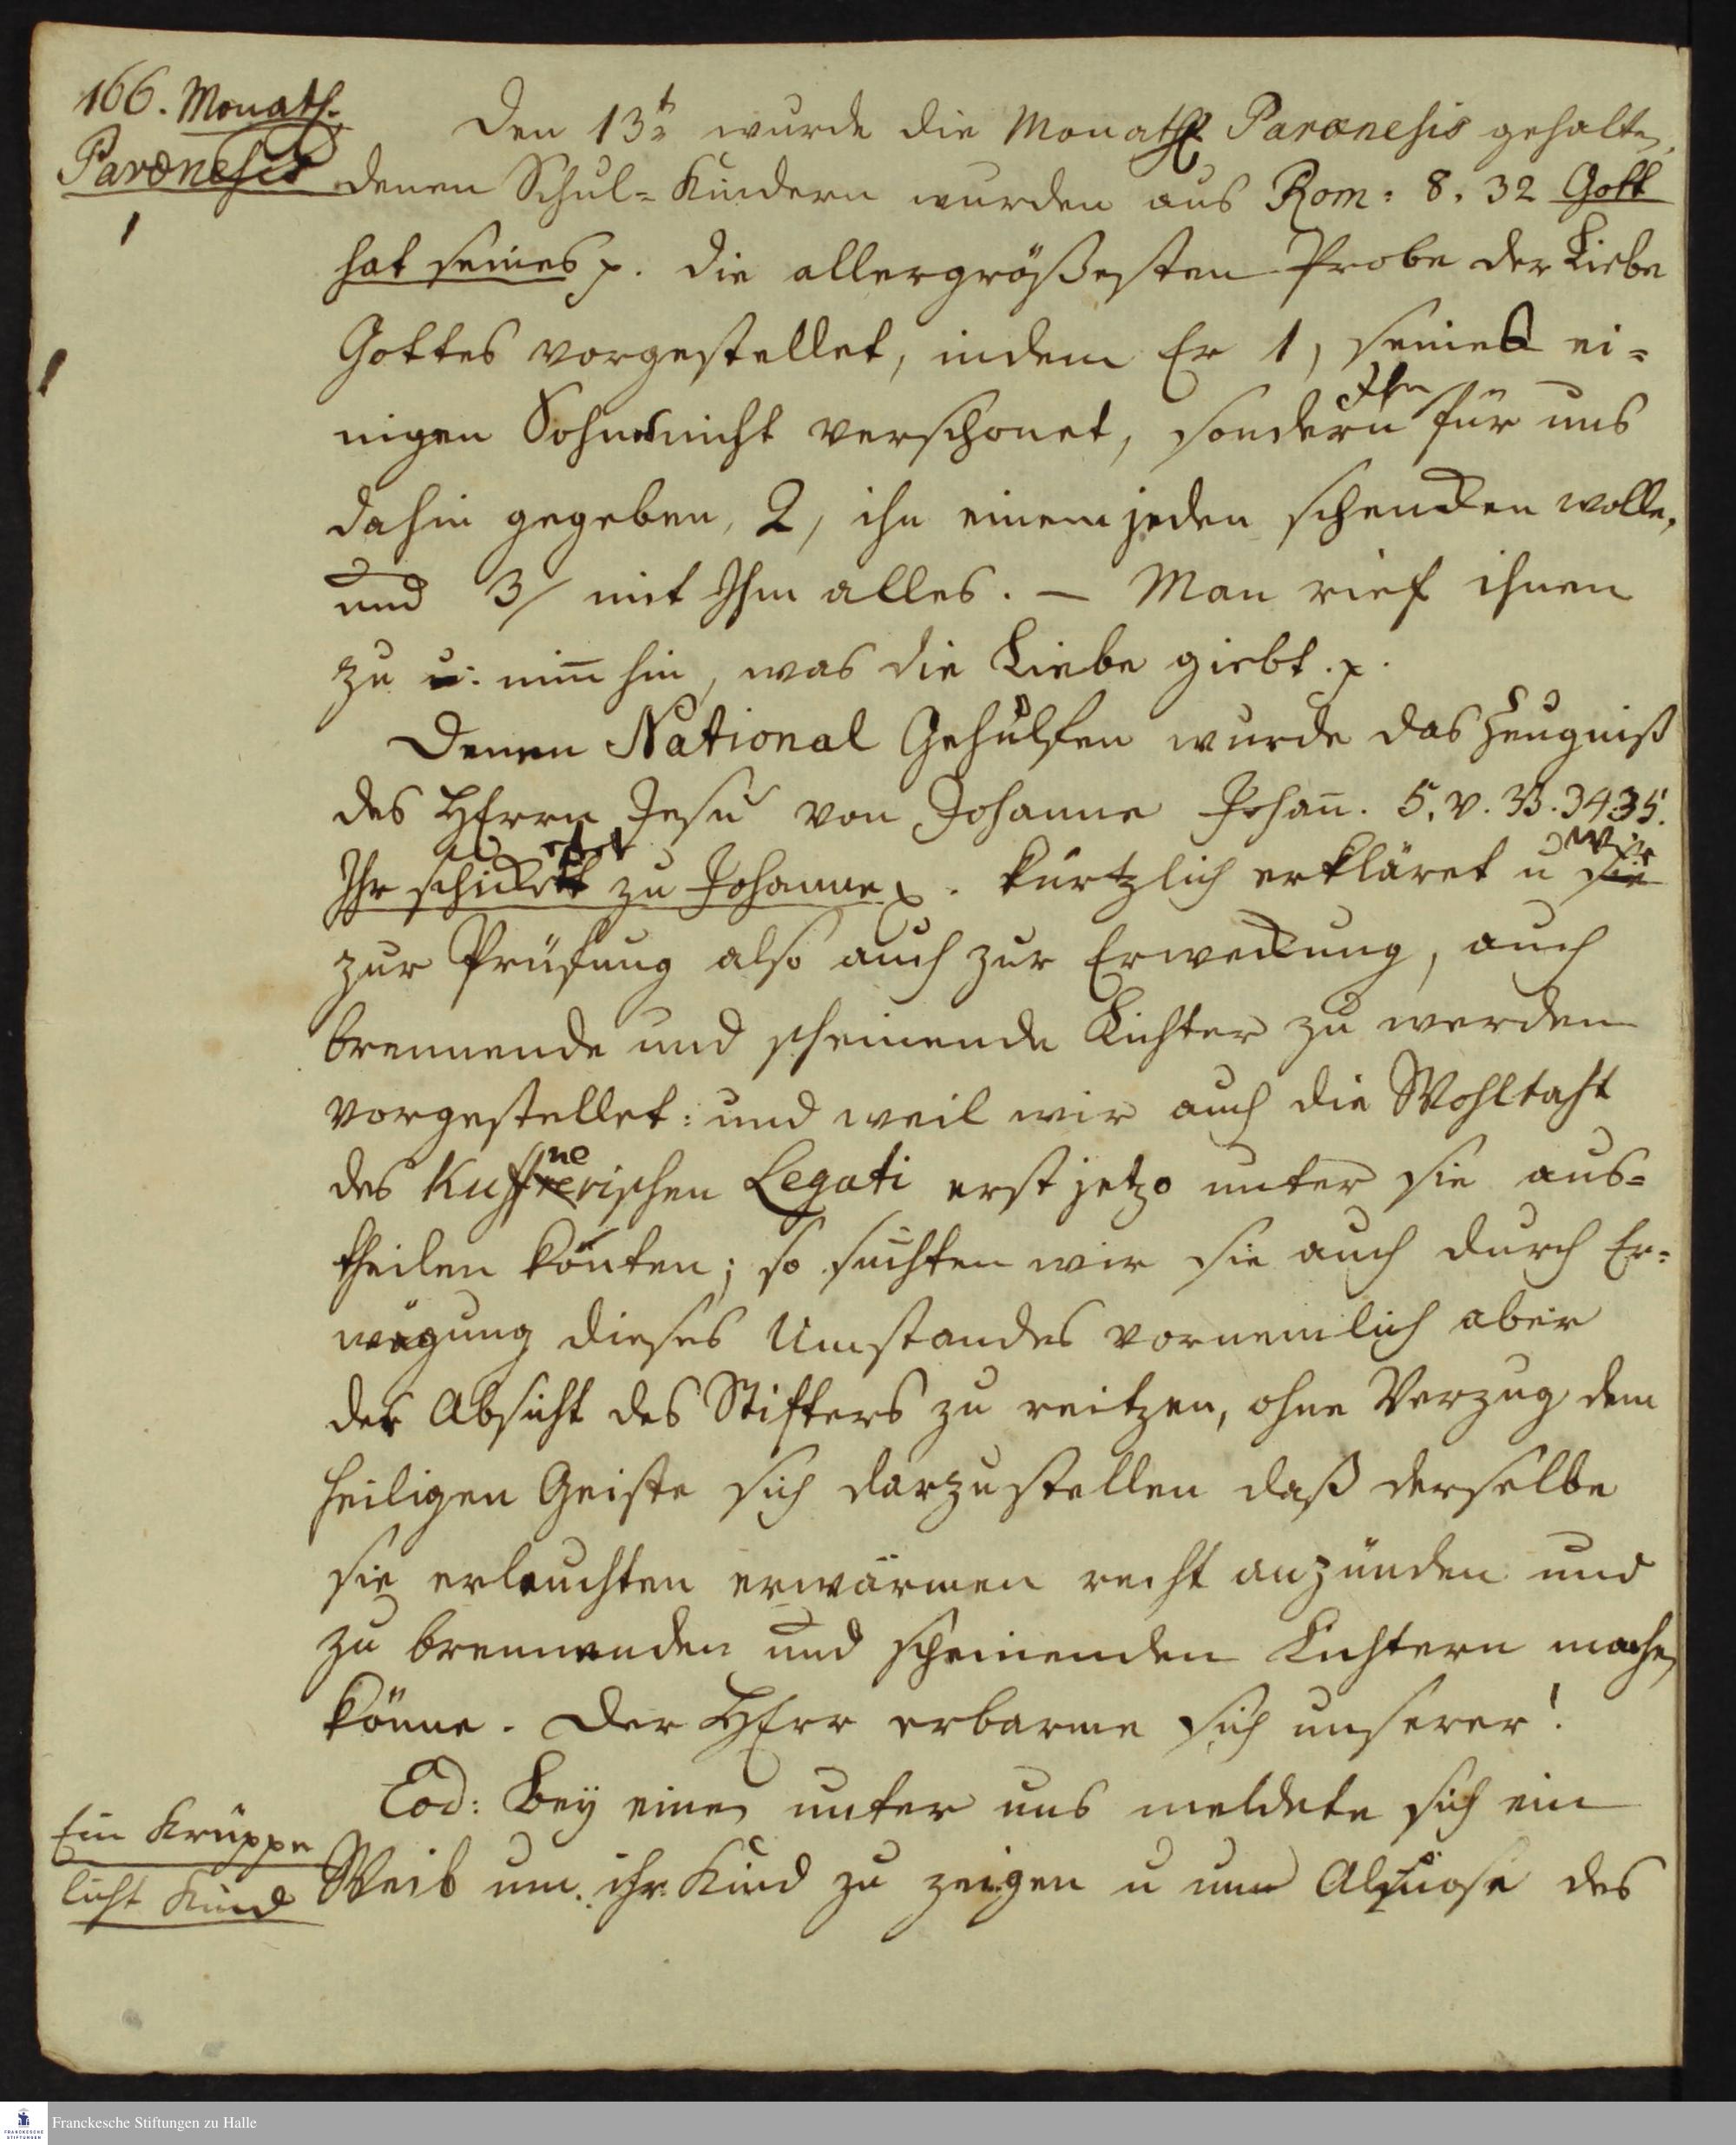 166. Monath.
Parænesis
Den 13t. wurde die Monathl Parænesis gehalten,
denen Schul-Kindern wurden aus Rom: 8. 32 Gott
hat seines p. die allergrößesten Probe der Liebe
Gottes vorgestellet, indem Er 1, seines ei-
nigen Sohnes nicht verschonet, sondern Ihn für uns
dahin gegeben, 2, ihn einem jeden schencken wolle,
und 3/ mit Ihm alles. – Man rief ihnen
zu u: nim̄ hin, was die Liebe giebt. p.
Denen National Gehülfen wurde das Zeugniß
des HErrn Jesu von Johanne Johan̄. 5. v. 33. 34 35.
Ihr schicktet zu Johanne p. kürtzlich erkläret u wie
zur Prüfung also auch zur Erweckung, auch
brennende und scheinende Lichter zu werden
vorgestellet: und weil wir auch die Wohltaht
des Kuffnerischen Legati erst jetzo unter sie aus-
theilen könten; so suchten wir sie auch durch Er-
wägung dieses Umstandes vornemlich aber
der Absicht des Stifters zu reitzen, ohne Verzug dem
Heiligen Geiste sich darzustellen daß derselbe
sie erleuchten erwärmen recht anzünden und
zu brennenden und scheinenden Lichtern machen
könne. Der HErr erbarme sich unserer!
Ein Krüppe
licht Kind
Eod: Bey einen unter uns meldete sich ein
Weib um ihr Kind zu zeigen u um Almose des
Franckesche Stiftungen zu Halle
FRANCKESCHE
STIFTUNGEN